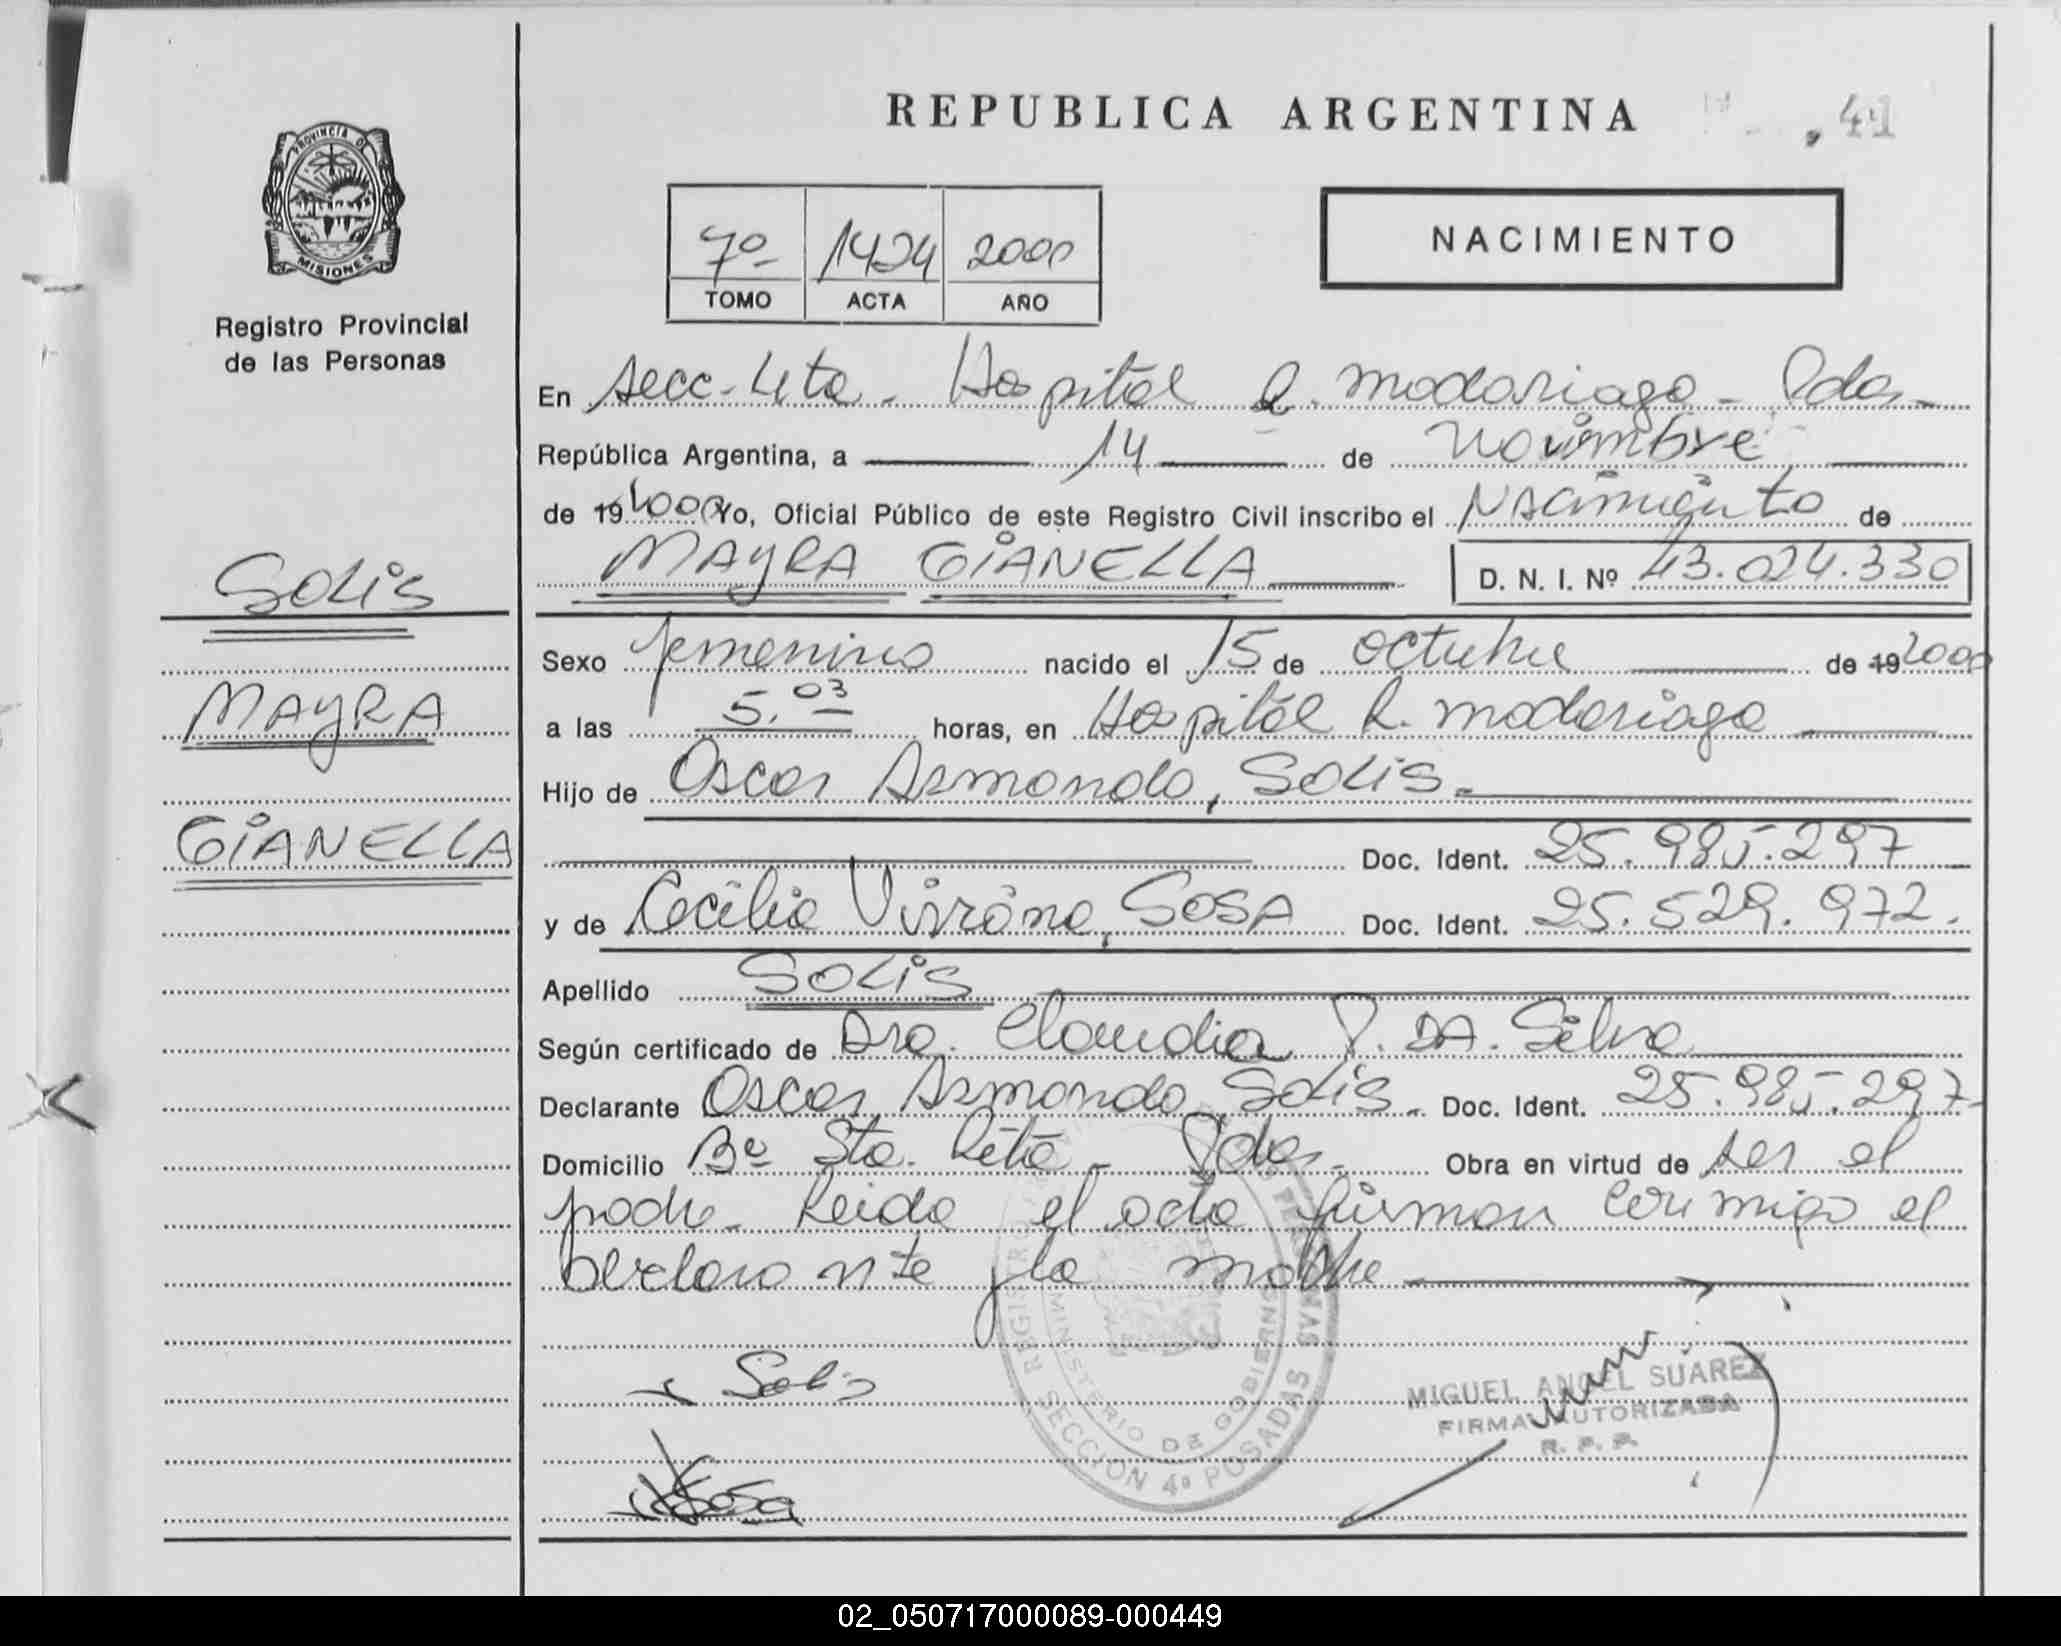 REPUBLICA ARGENTINA
41
PROVINCIA DE
MISIONES
Registro Provincial
de las Personas
7º 1424 2000
TOMO ACTA AÑO
NACIMIENTO
En Secc. 4ta. Hospital R. Madariaga - Pdas -
República Argentina, a 14 de Noviembre
de 19 2000 Yo, Oficial Público de este Registro Civil inscribo el Nacimiento de
MAYRA GIANELLA D. N. I. Nº 43.024.330
SOLIS
MAYRA
GIANELLA
Sexo femenino nacido el 15 de octubre de 19 2000
a las 5,03 horas, en Hospital R. Madariaga
Hijo de Oscar Armando, SOLIS.
Doc. Ident. 25.985.297
y de Cecilia Viviana, SOSA Doc. Ident. 25.529.972.
Apellido SOLIS
Según certificado de Dra. Claudia P. DA. Silva
Declarante Oscar Armando Solis. Doc. Ident. 25.985.297-
Domicilio Bº Sta. Rita - Pdas. Obra en virtud de ser el
padre. Leida el acta firman conmigo el
declarante y la madre
REGISTRO PERSONAS
MINISTERIO DE GOBIERNO
SECCION 4º POSADAS
Solis
Sosa
MIGUEL ANGEL SUAREZ
FIRMA AUTORIZADA
R. P. P.
02_050717000089-000449